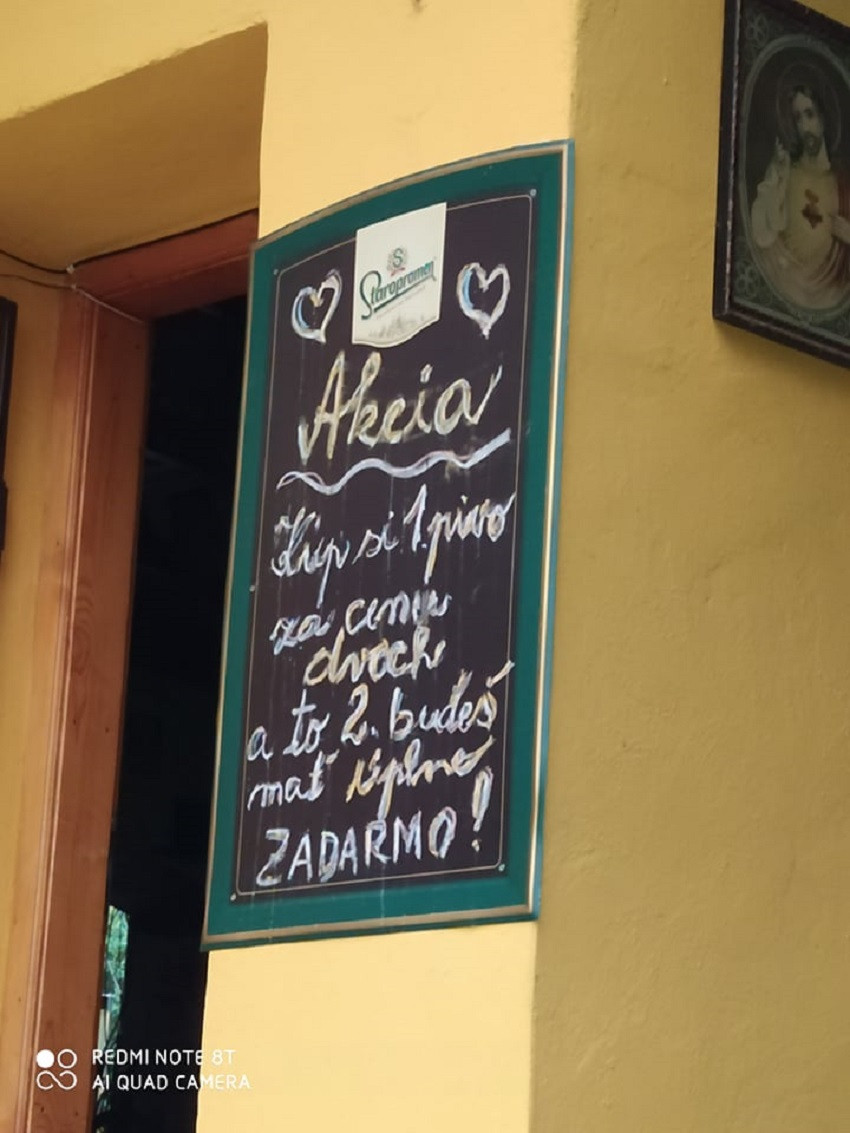 S
Staropramen
Akcia
Kúp si 1. pivo
za cenu
dvoch
a to 2. budeš
mať úplne
ZADARMO!
REDMI NOTE 8T
AI QUAD CAMERA